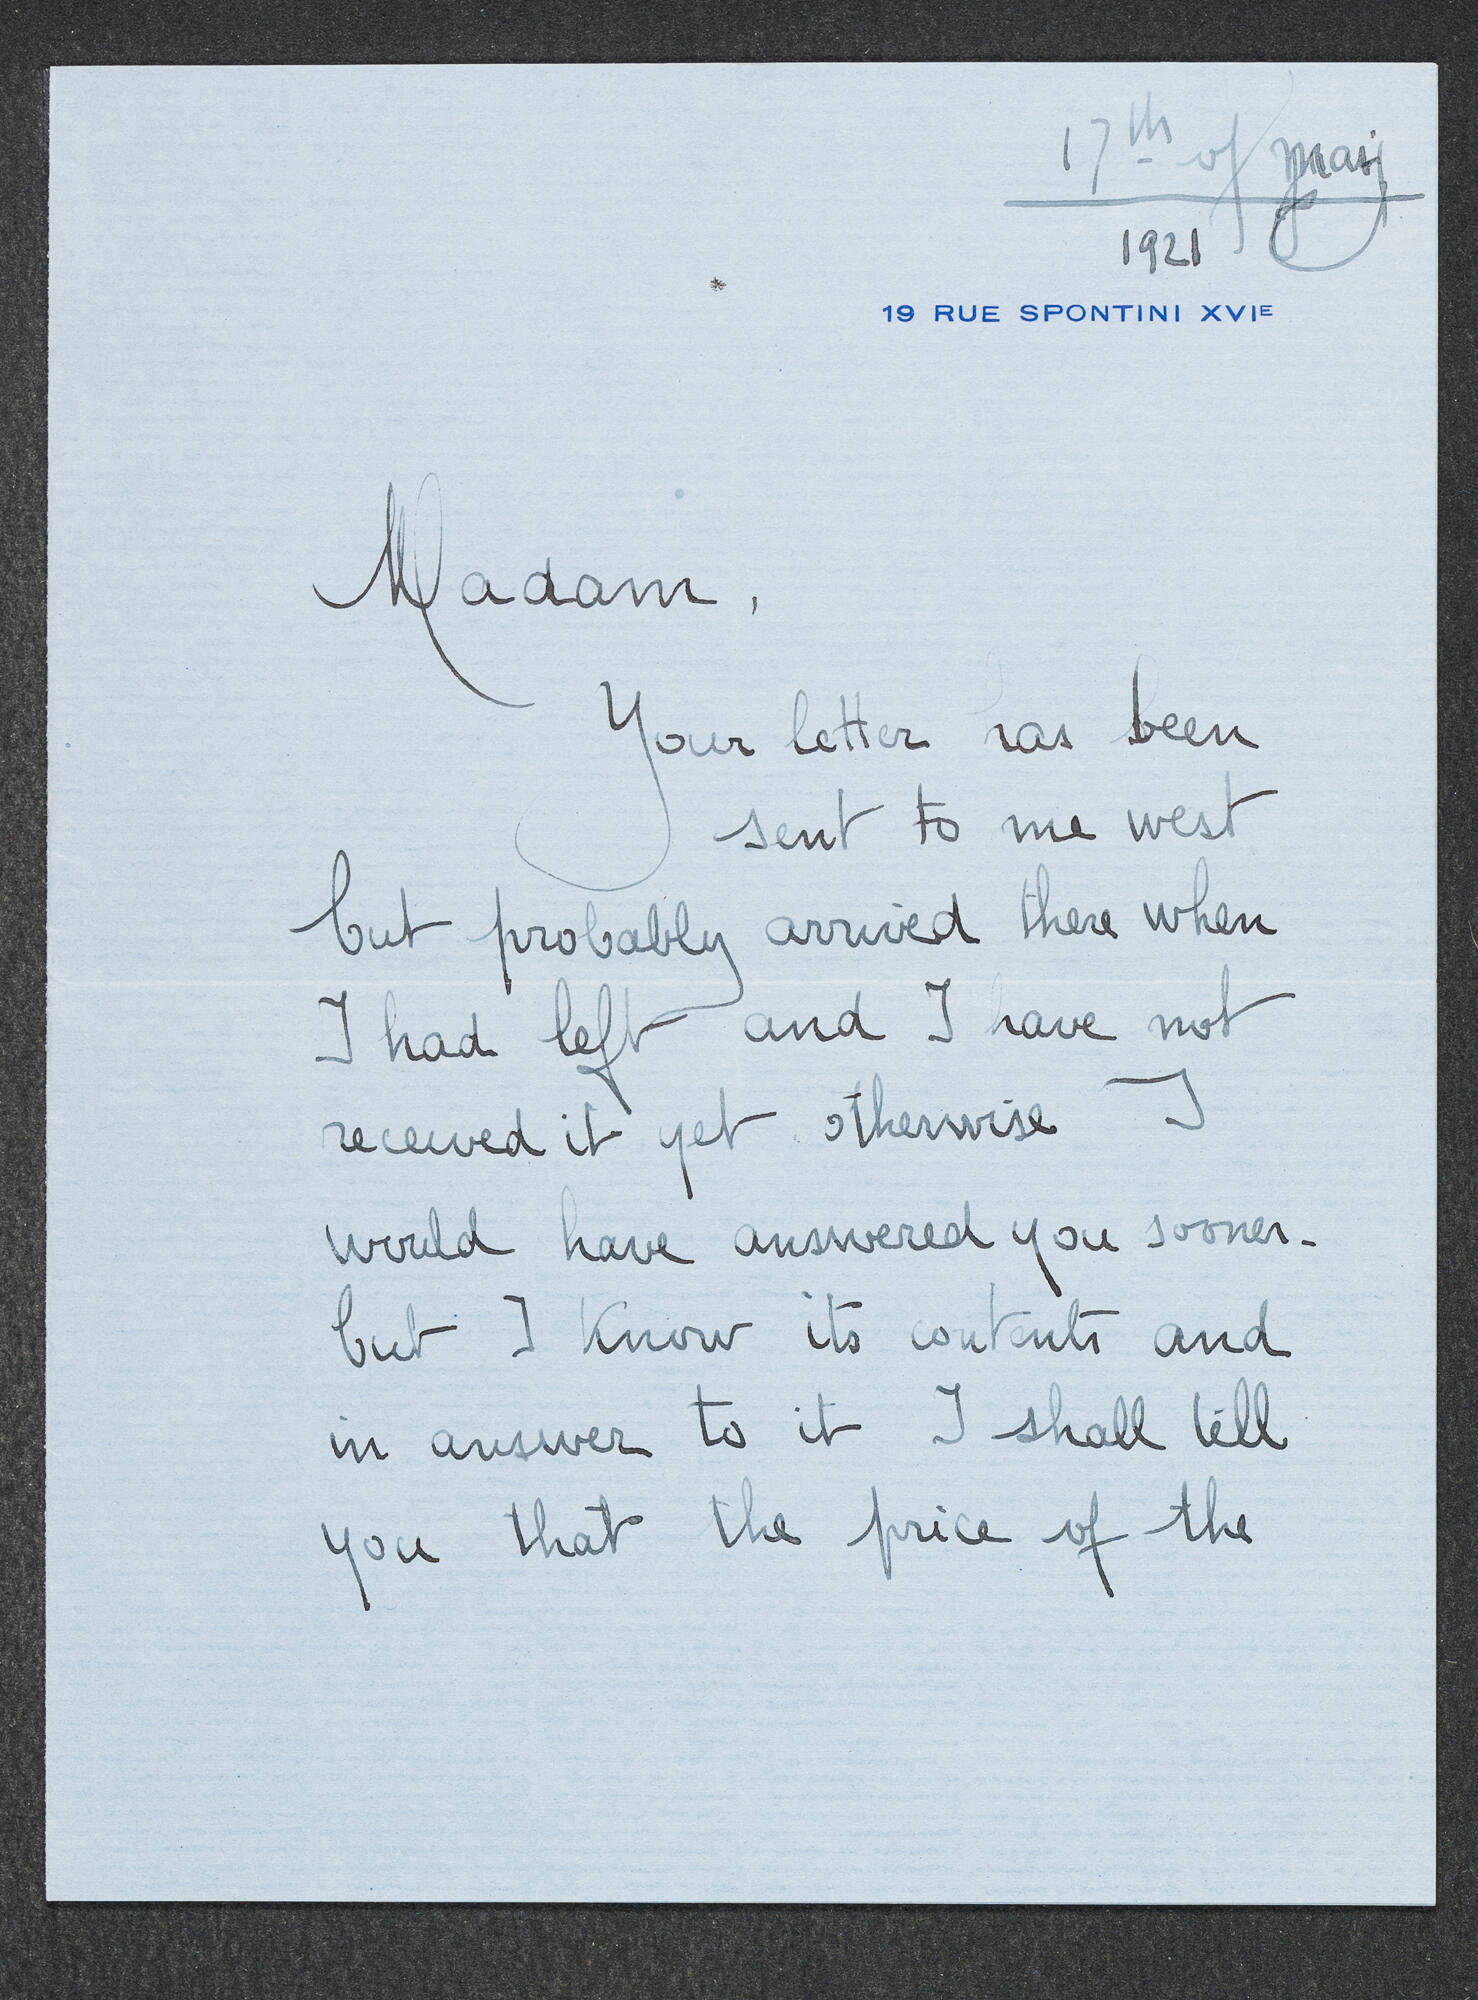 17th of May
1921
19 RUE SPONTINI XVIE
Madam,
Your letter has been
sent to me west
but probably arrived there when
I had left and I have not
received it yet otherwise I
would have answered you sooner -
but I know its contents and
in answer to it I shall tell
you that the price of the